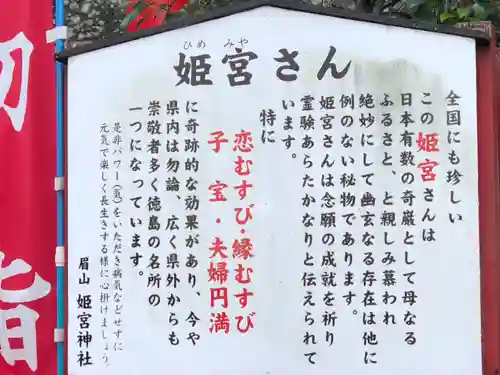 ひめ みや
姫宮さん
全国にも珍しい
この姫宮さんは
日本有数の奇巌として母なる
ふるさと、と親しみ慕われ
絶妙にして幽玄なる存在は他に
例のない秘物であります。
姫宮さんは念願の成就を祈り
霊験あらたかなりと伝えられて
います。
特に
恋むすび・縁むすび
子宝・夫婦円満
に奇跡的な効果があり、今や
県内は勿論、広く県外からも
崇敬者多く徳島の名所の
一つになっています。
是非パワー(気)をいただき病気などせずに
元気で楽しく長生きする様に心掛けましょう。
眉山 姫宮神社
初
詣